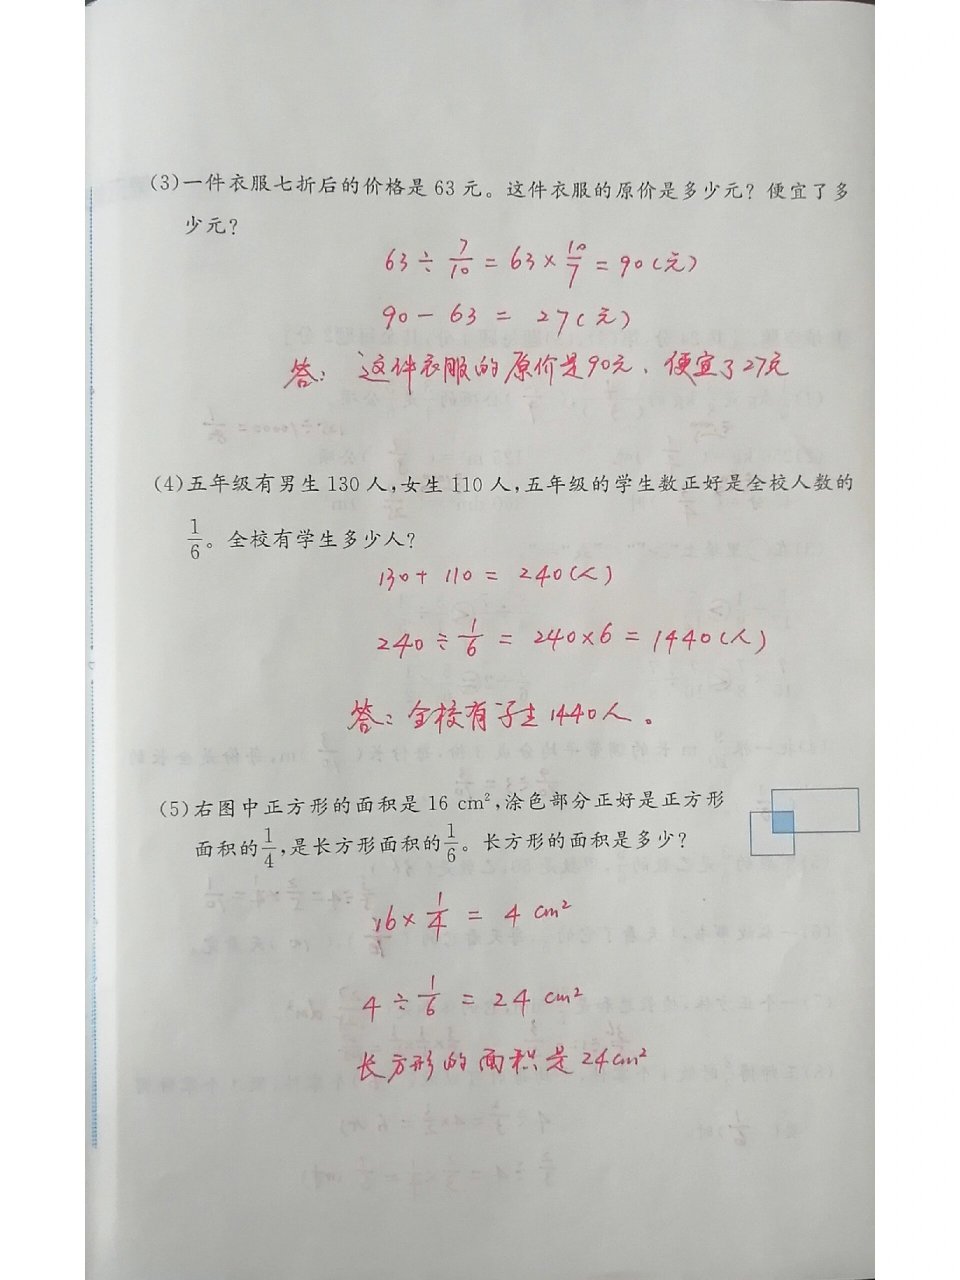 (3)一件衣服七折后的价格是 63 元。这件衣服的原价是多少元？便宜了多
少元？
63 ÷ 7/10 = 63 × 10/7 = 90(元)
90 - 63 = 27(元)
答：这件衣服的原价是90元，便宜了27元
(4)五年级有男生 130 人,女生 110 人,五年级的学生数正好是全校人数的
1/6。全校有学生多少人？
130 + 110 = 240(人)
240 ÷ 1/6 = 240×6 = 1440(人)
答：全校有学生1440人。
(5)右图中正方形的面积是 16 cm²,涂色部分正好是正方形
面积的1/4,是长方形面积的1/6。长方形的面积是多少？
16 × 1/4 = 4 cm²
4 ÷ 1/6 = 24 cm²
长方形的面积是24cm²